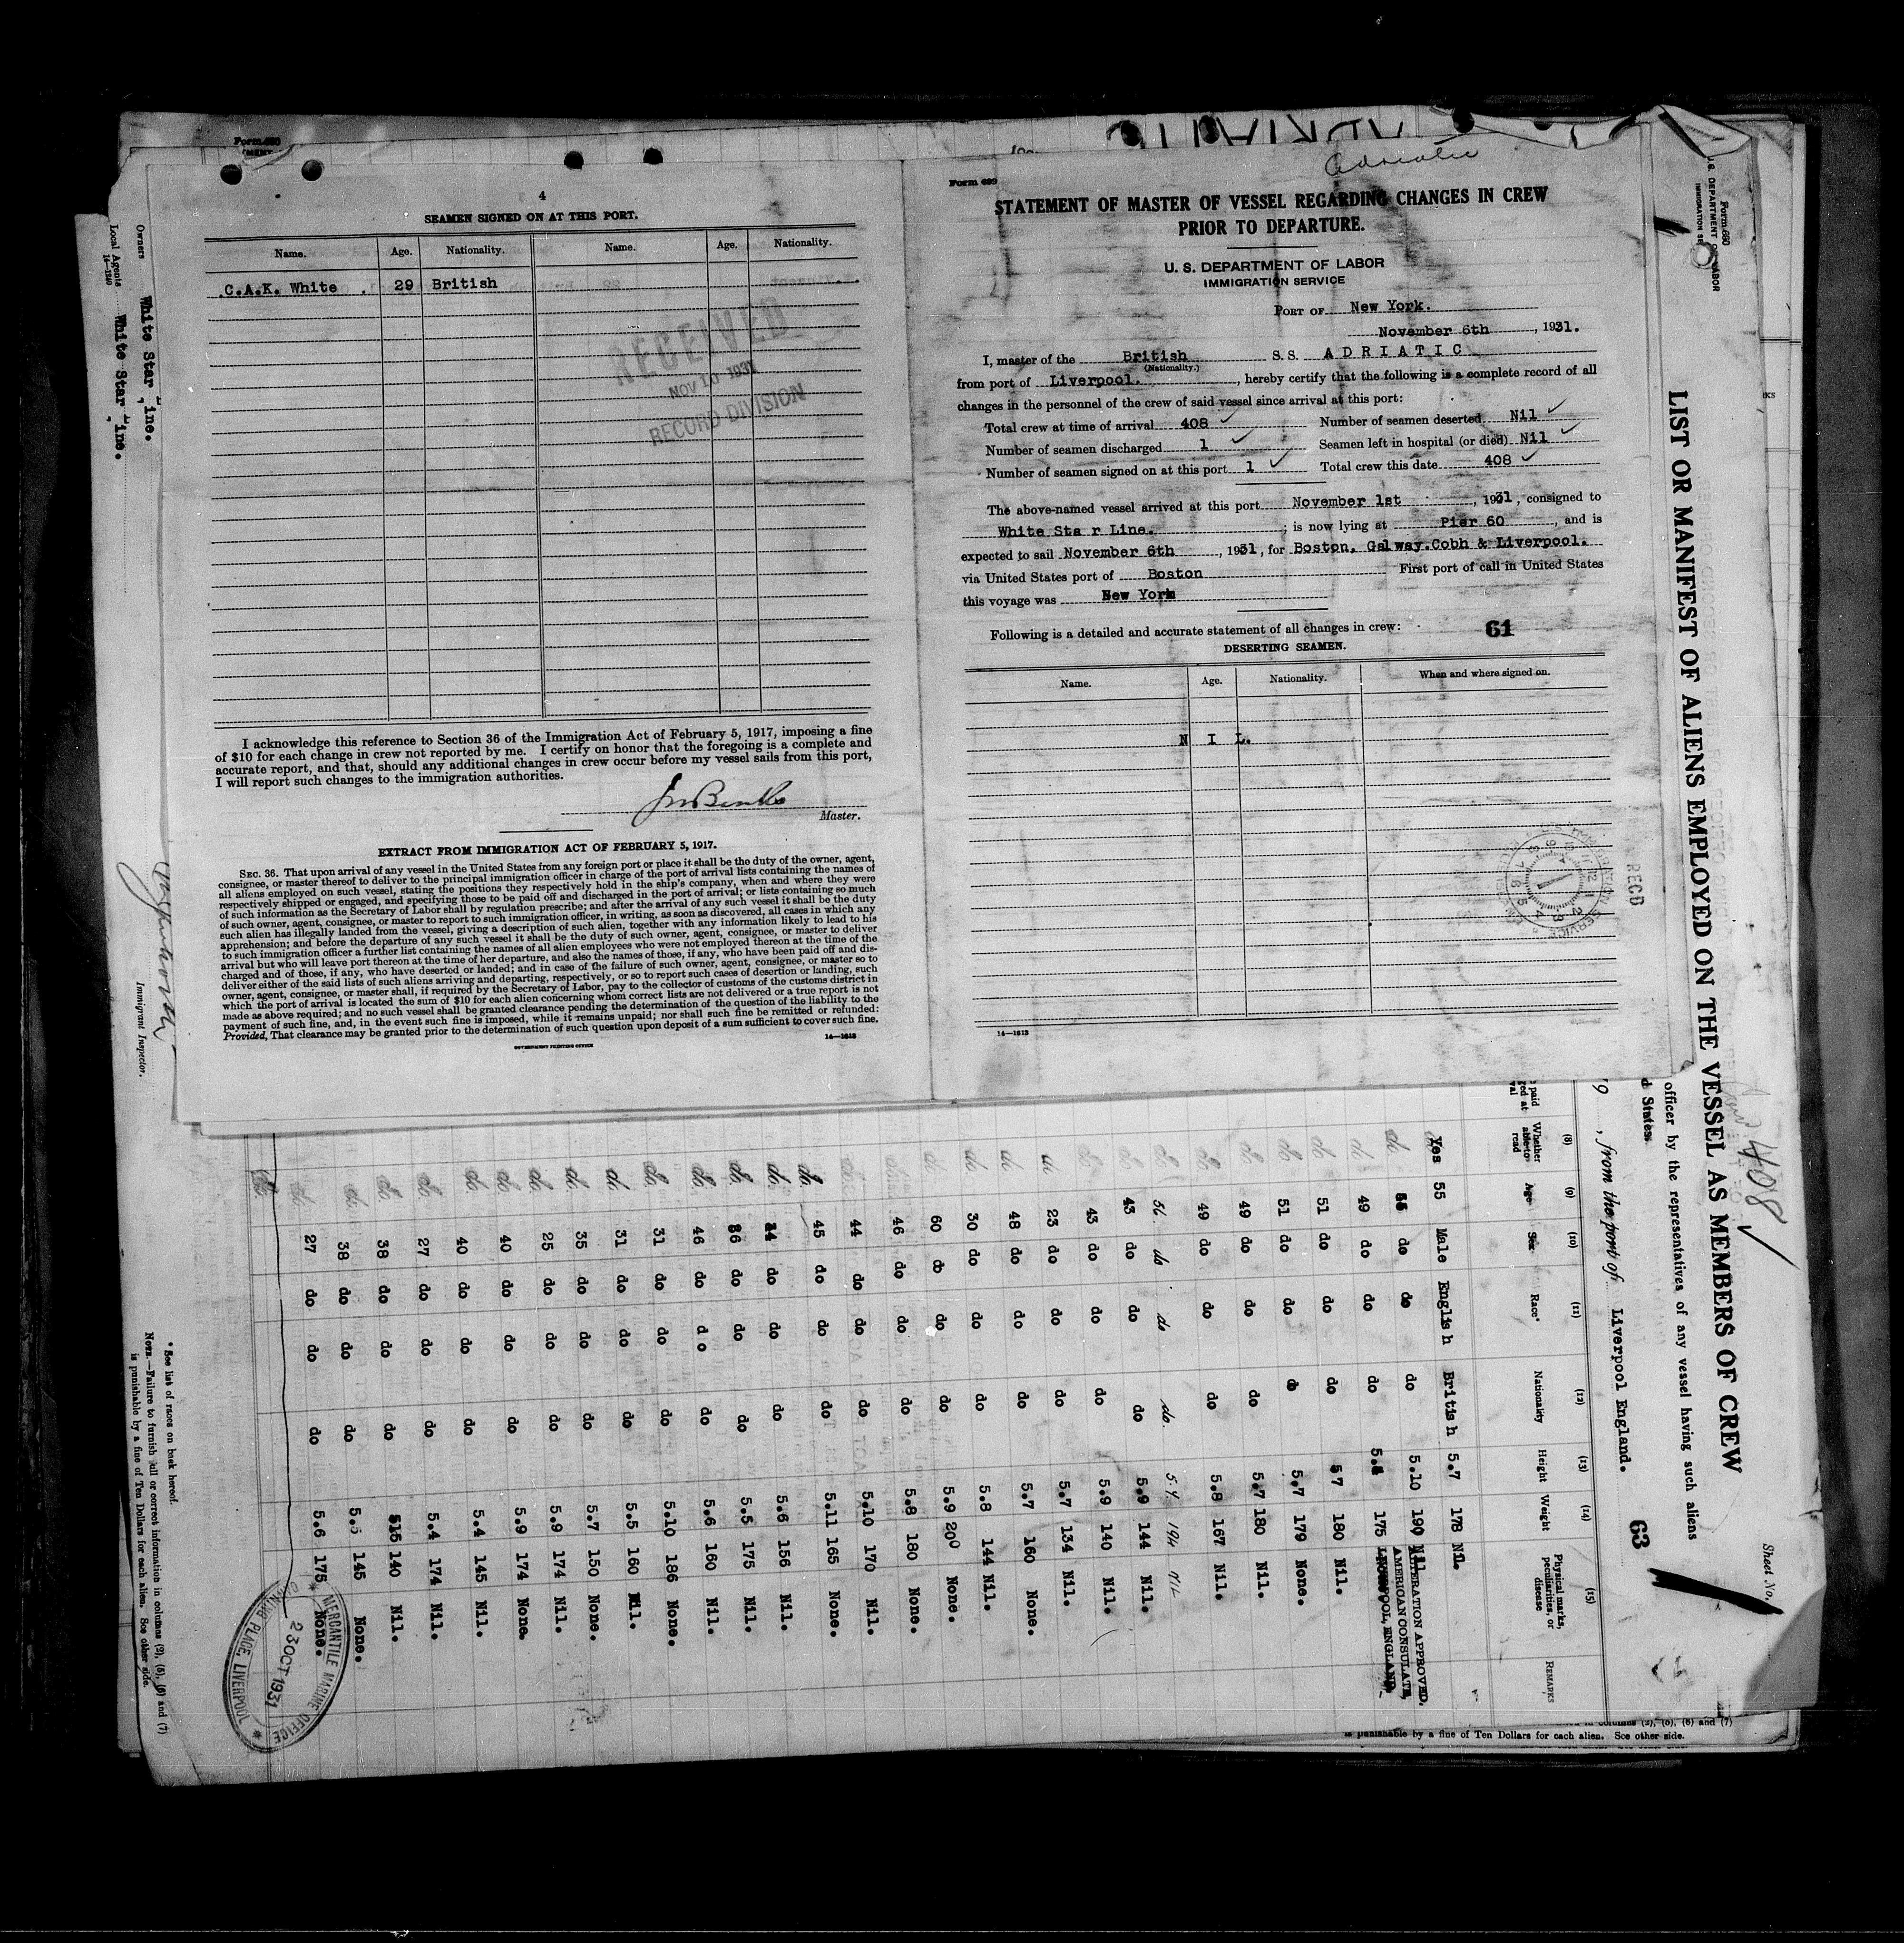 Form 680
4
SEAMEN SIGNED ON AT THIS PORT.
Name. Age. Nationality. Name. Age. Nationality.
C.A.K. White 29 British
RECEIVED
NOV 10 1931
RECORD DIVISION
I acknowledge this reference to Section 36 of the Immigration Act of February 5, 1917, imposing a fine
of $10 for each change in crew not reported by me. I certify on honor that the foregoing is a complete and
accurate report, and that, should any additional changes in crew occur before my vessel sails from this port,
I will report such changes to the immigration authorities.
Master.
EXTRACT FROM IMMIGRATION ACT OF FEBRUARY 5, 1917.
SEC. 36. That upon arrival of any vessel in the United States from any foreign port or place it shall be the duty of the owner, agent,
consignee, or master thereof to deliver to the principal immigration officer in charge of the port of arrival lists containing the names of
all aliens employed on such vessel, stating the positions they respectively hold in the ship's company, when and where they were
respectively shipped or engaged, and specifying those to be paid off and discharged in the port of arrival; or lists containing so much
of such information as the Secretary of Labor shall by regulation prescribe; and after the arrival of any such vessel it shall be the duty
of such owner, agent, consignee, or master to report to such immigration officer, in writing, as soon as discovered, all cases in which any
such alien has illegally landed from the vessel, giving a description of such alien, together with any information likely to lead to his
apprehension; and before the departure of any such vessel it shall be the duty of such owner, agent, consignee, or master to deliver
to such immigration officer a further list containing the names of all alien employees who were not employed thereon at the time of the
arrival but who will leave port thereon at the time of her departure, and also the names of those, if any, who have been paid off and dis-
charged and of those, if any, who have deserted or landed; and in case of the failure of such owner, agent, consignee, or master so to
deliver either of the said lists of such aliens arriving and departing, respectively, or so to report such cases of desertion or landing, such
owner, agent, consignee, or master shall, if required by the Secretary of Labor, pay to the collector of customs of the customs district in
which the port of arrival is located the sum of $10 for each alien concerning whom correct lists are not delivered or a true report is not
made as above required; and no such vessel shall be granted clearance pending the determination of the question of the liability to the
payment of such fine, and, in the event such fine is imposed, while it remains unpaid; nor shall such fine be remitted or refunded:
Provided, That clearance may be granted prior to the determination of such question upon deposit of a sum sufficient to cover such fine.
GOVERNMENT PRINTING OFFICE 14—1613
Adriatic
Form 689
STATEMENT OF MASTER OF VESSEL REGARDING CHANGES IN CREW
PRIOR TO DEPARTURE.
U. S. DEPARTMENT OF LABOR
IMMIGRATION SERVICE
PORT OF New York.
November 6th, 1931.
I, master of the British S.S. A D R I A T I C
(Nationality.)
from port of Liverpool., hereby certify that the following is a complete record of all
changes in the personnel of the crew of said vessel since arrival at this port:
Total crew at time of arrival 408 ✓ Number of seamen deserted Nil ✓
Number of seamen discharged 1 ✓ Seamen left in hospital (or died) Nil ✓
Number of seamen signed on at this port 1 ✓ Total crew this date 408 ✓
The above-named vessel arrived at this port November 1st, 1931, consigned to
White Sta r Line.; is now lying at Pier 60, and is
expected to sail November 6th, 1931, for Boston, Galway.Cobh & Liverpool.
via United States port of Boston First port of call in United States
this voyage was New York
Following is a detailed and accurate statement of all changes in crew: 61
DESERTING SEAMEN.
Name. Age. Nationality. When and where signed on.
N I L.
RECD
14—1613
Owners White Star Line.
Local Agents White Star Line.
14—1240
Immigrant Inspector.
* See list of races on back hereof.
NOTE.—Failure to furnish full or correct information in columns (2), (5), (6) and (7)
is punishable by a fine of Ten Dollars for each alien. See other side.
Form 680
U.S. DEPARTMENT OF LABOR
Sheet No.
408 ✓
LIST OR MANIFEST OF ALIENS EMPLOYED ON THE VESSEL AS MEMBERS OF CREW
officer by the representatives of any vessel having such aliens
d States.
63
, from the port of Liverpool England.
(8) (9) (10) (11) (12) (13) (14) (15)
Whether able to read Age Sex Race* Nationality Height Weight Physical marks, peculiarities, or disease REMARKS
Yes 55 Male English British 5.7 178 Nil.
do do do 5.10 190 Nil
ALTERATION APPROVED,
AMERICAN CONSULATE,
LIVERPOOL, ENGLAND
49 do do do 175
51 do do do 5 7 180 Nil.
51 do do do 5.7 179 None.
49 do do do 5.7 180 Nil.
49 do do do 5.8 167 Nil.
56 do do do 5.9 194 Nil
43 do do do 5.9 144 Nil.
43 do do do 5.9 140 Nil.
23 do do do 5.7 134 Nil.
48 do do do 5.7 160 None.
30 do do do 5.8 144 Nil.
60 do do do 5.9 200 None.
46 do do do 5.8 180 None.
44 do do do 5.10 170 Nil.
45 do do do 5.11 165 None.
do. 44 do do do 5.6 156 Nil.
do. 36 do do do 5.5 175 Nil.
do. 46 do do do 5.6 160 Nil.
do. 31 do do do 5.10 186 None.
do. 31 do do do 5.5 160 Nil.
do. 35 do do do 5.7 150 None.
do. 25 do do do 5.9 174 Nil.
do. 40 do do do 5.9 174 None.
do. 40 do do do 5.4 145 Nil.
do. 27 do do do 5.4 174 Nil.
do. 38 do do do 140 Nil.
do. 38 do do do 5.5 145 None.
do. 27 do do do 5.6 175 None.
MERCANTILE MARINE OFFICE
23 OCT 1931
CANNING PLACE, LIVERPOOL
is punishable by a fine of Ten Dollars for each alien. See other side.